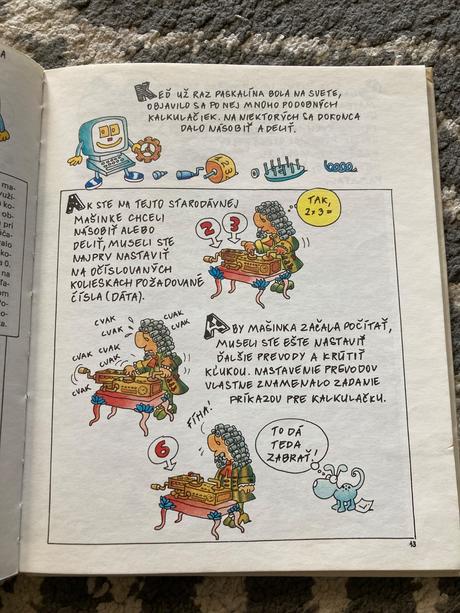 A
ma-
yuží-
ko-
ob-
pri
iča-
alo
ko-
a 0.
na
ľa-
om
o-
ta.
KEĎ UŽ RAZ PASKALÍNA BOLA NA SVETE,
OBJAVILO SA PO NEJ MNOHO PODOBNÝCH
KALKULAČIEK. NA NIEKTORÝCH SA DOKONCA
DALO NÁSOBIŤ A DELIŤ.
AK STE NA TEJTO STARODÁVNEJ
MAŠINKE CHCELI
NÁSOBIŤ ALEBO
DELIŤ, MUSELI STE
NAJPRV NASTAVIŤ
NA OČÍSLOVANÝCH
KOLIESKACH POŽADOVANÉ
ČÍSLA (DÁTA).
TAK,
2x3=
2 3
CVAK
CVAK
CVAK
CVAK
CVAK
CVAK
CVAK
CVAK
ABY MAŠINKA ZAČALA POČÍTAŤ,
MUSELI STE EŠTE NASTAVIŤ
ĎALŠIE PREVODY A KRÚTIŤ
KĽUKOU. NASTAVENIE PREVODOV
VLASTNE ZNAMENALO ZADANIE
PRÍKAZOV PRE KALKULAČKU.
FÍHA!
6
TO DÁ
TEDA
ZABRAŤ!
13